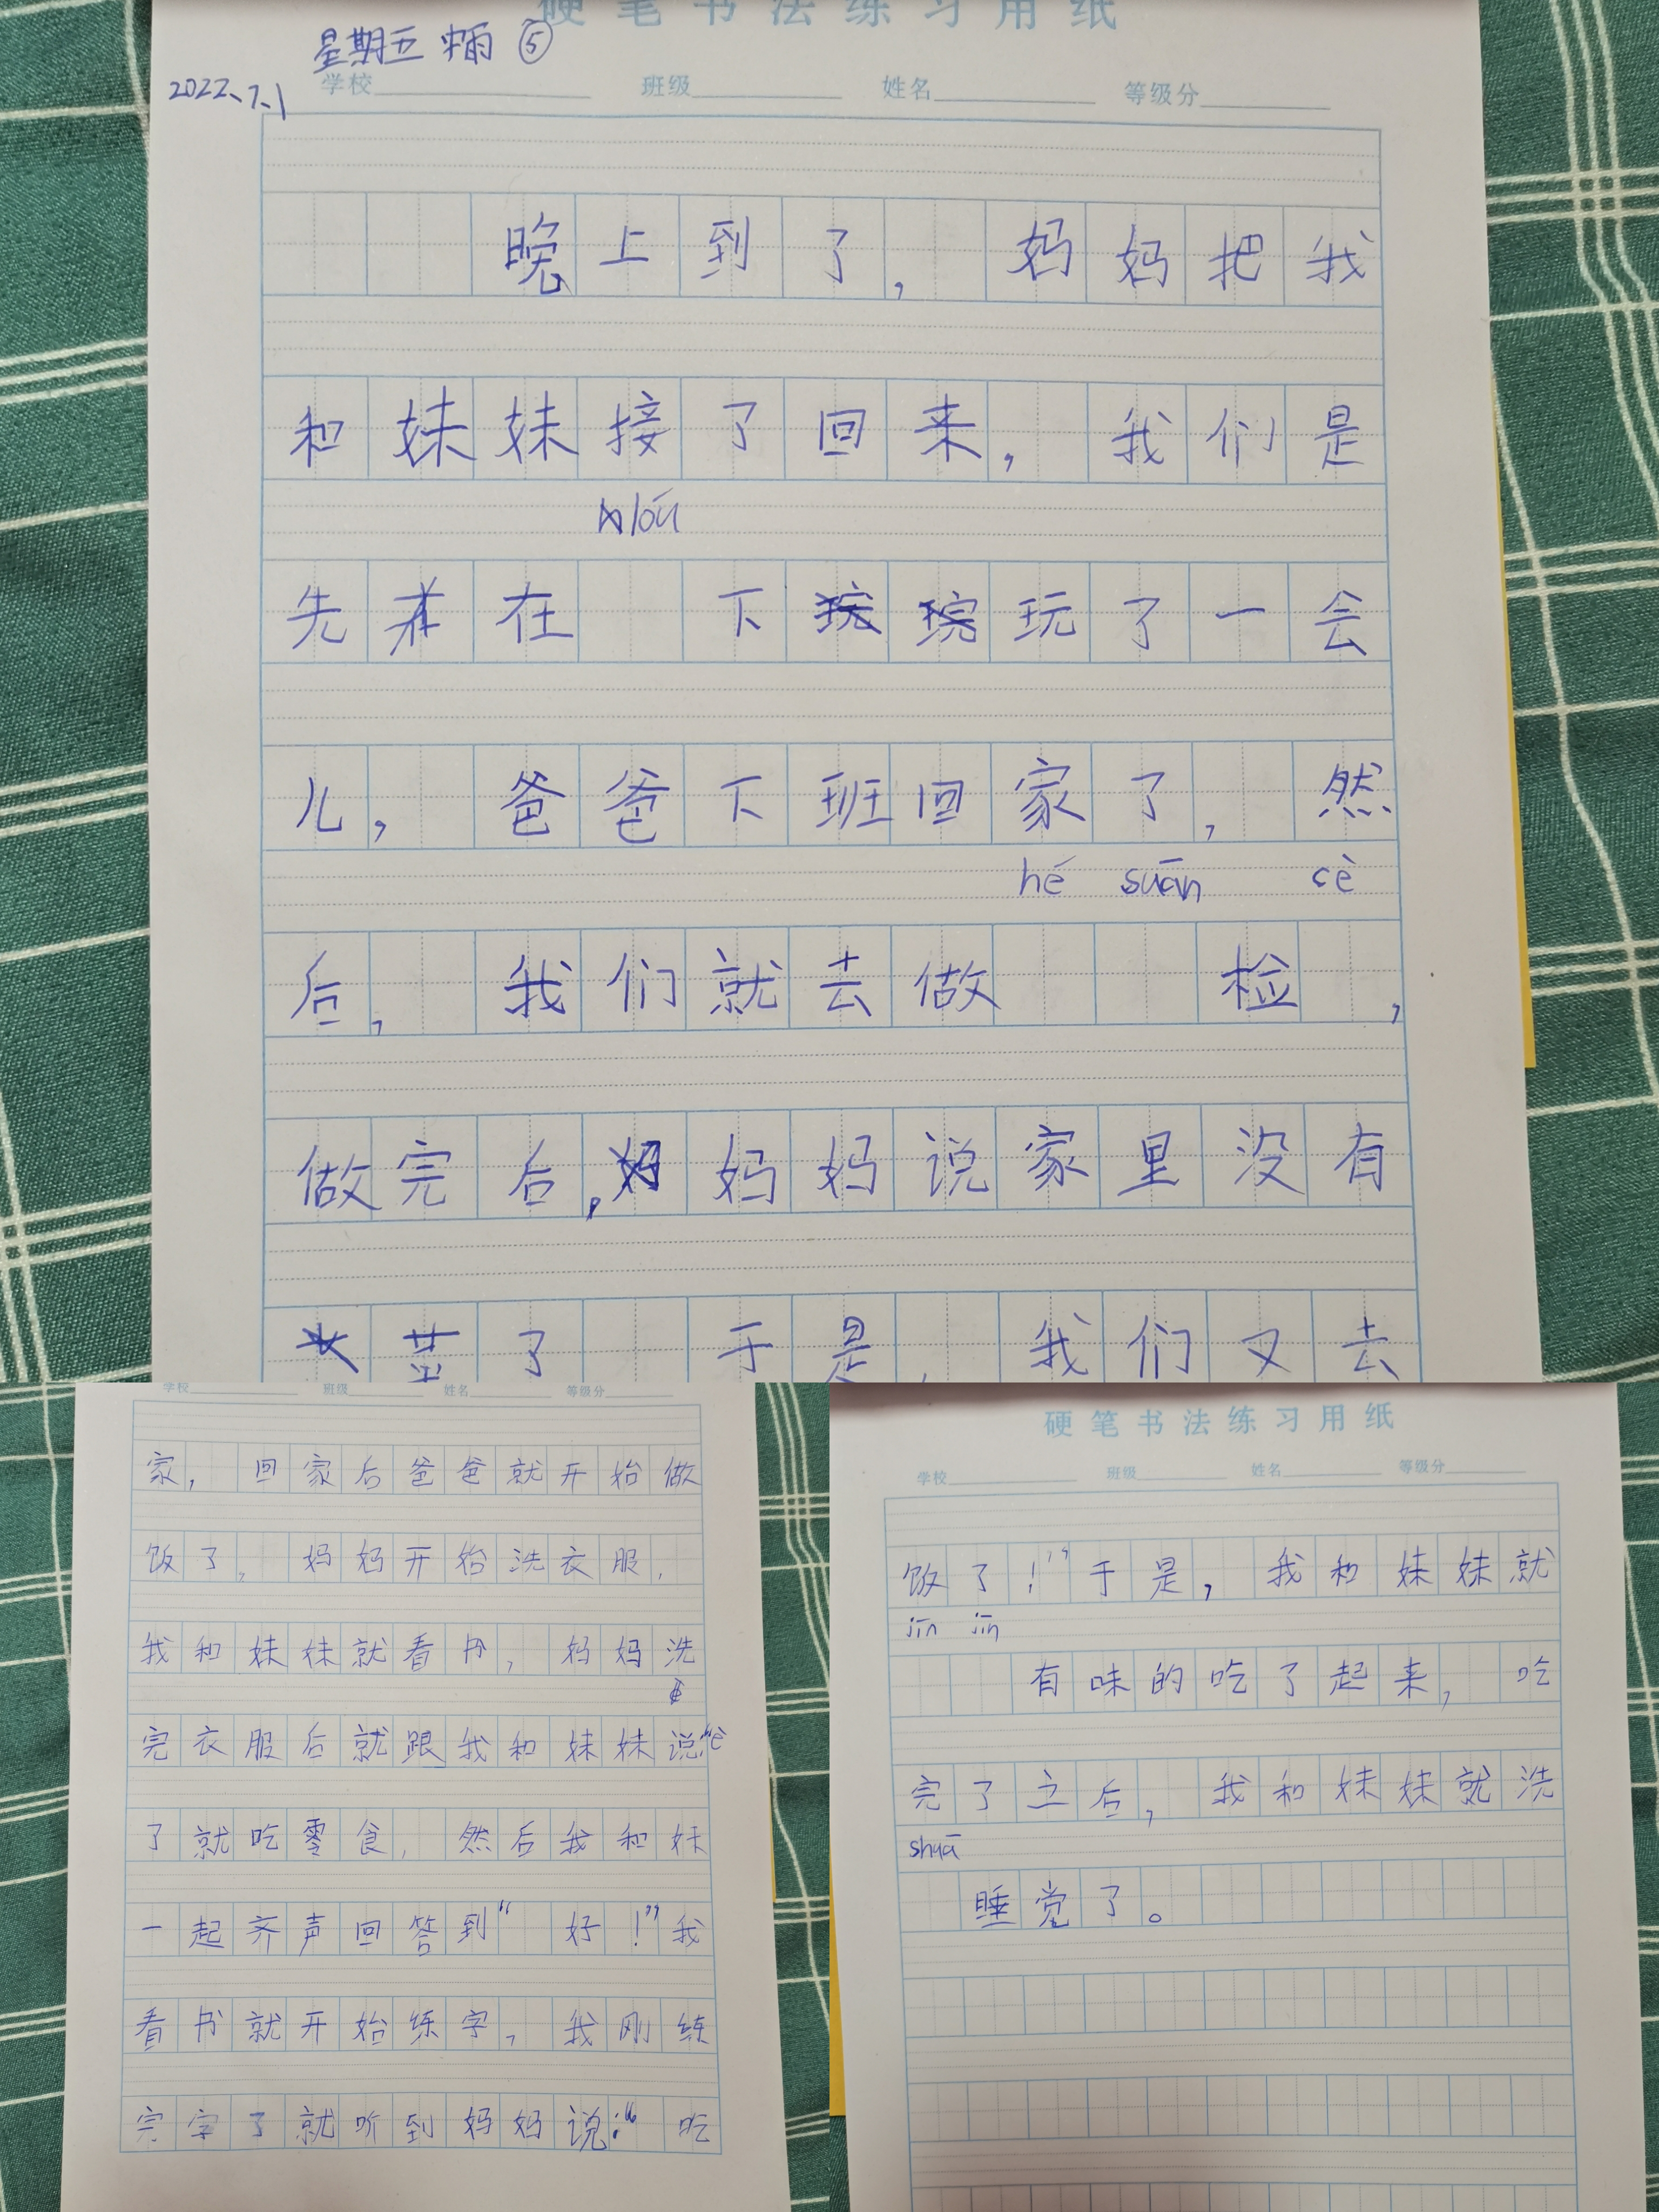 硬笔书法练习用纸
星期五 中雨 ⑤
2022、7、1
学校 班级 姓名 等级分
晚上到了，妈妈把我
和妹妹接了回来，我们是
lóu
先在 下玩了一会
儿，爸爸下班回家了，然
hé suān cè
后，我们就去做 检 ，
做完后，妈妈说家里没有
菜了 于是，我们又去
学校 班级 姓名 等级分
家，回家后爸爸就开始做
饭了，妈妈开始洗衣服，
我和妹妹就看书，妈妈洗
完衣服后就跟我和妹妹说“è
了就吃零食，然后我和妹
一起齐声回答到“好！”我
看书就开始练字，我刚练
完字了就听到妈妈说：“吃
硬笔书法练习用纸
学校 班级 姓名 等级分
饭了！”于是，我和妹妹就
jīn jīn
有味的吃了起来，吃
完了之后，我和妹妹就洗
shuā
睡觉了。